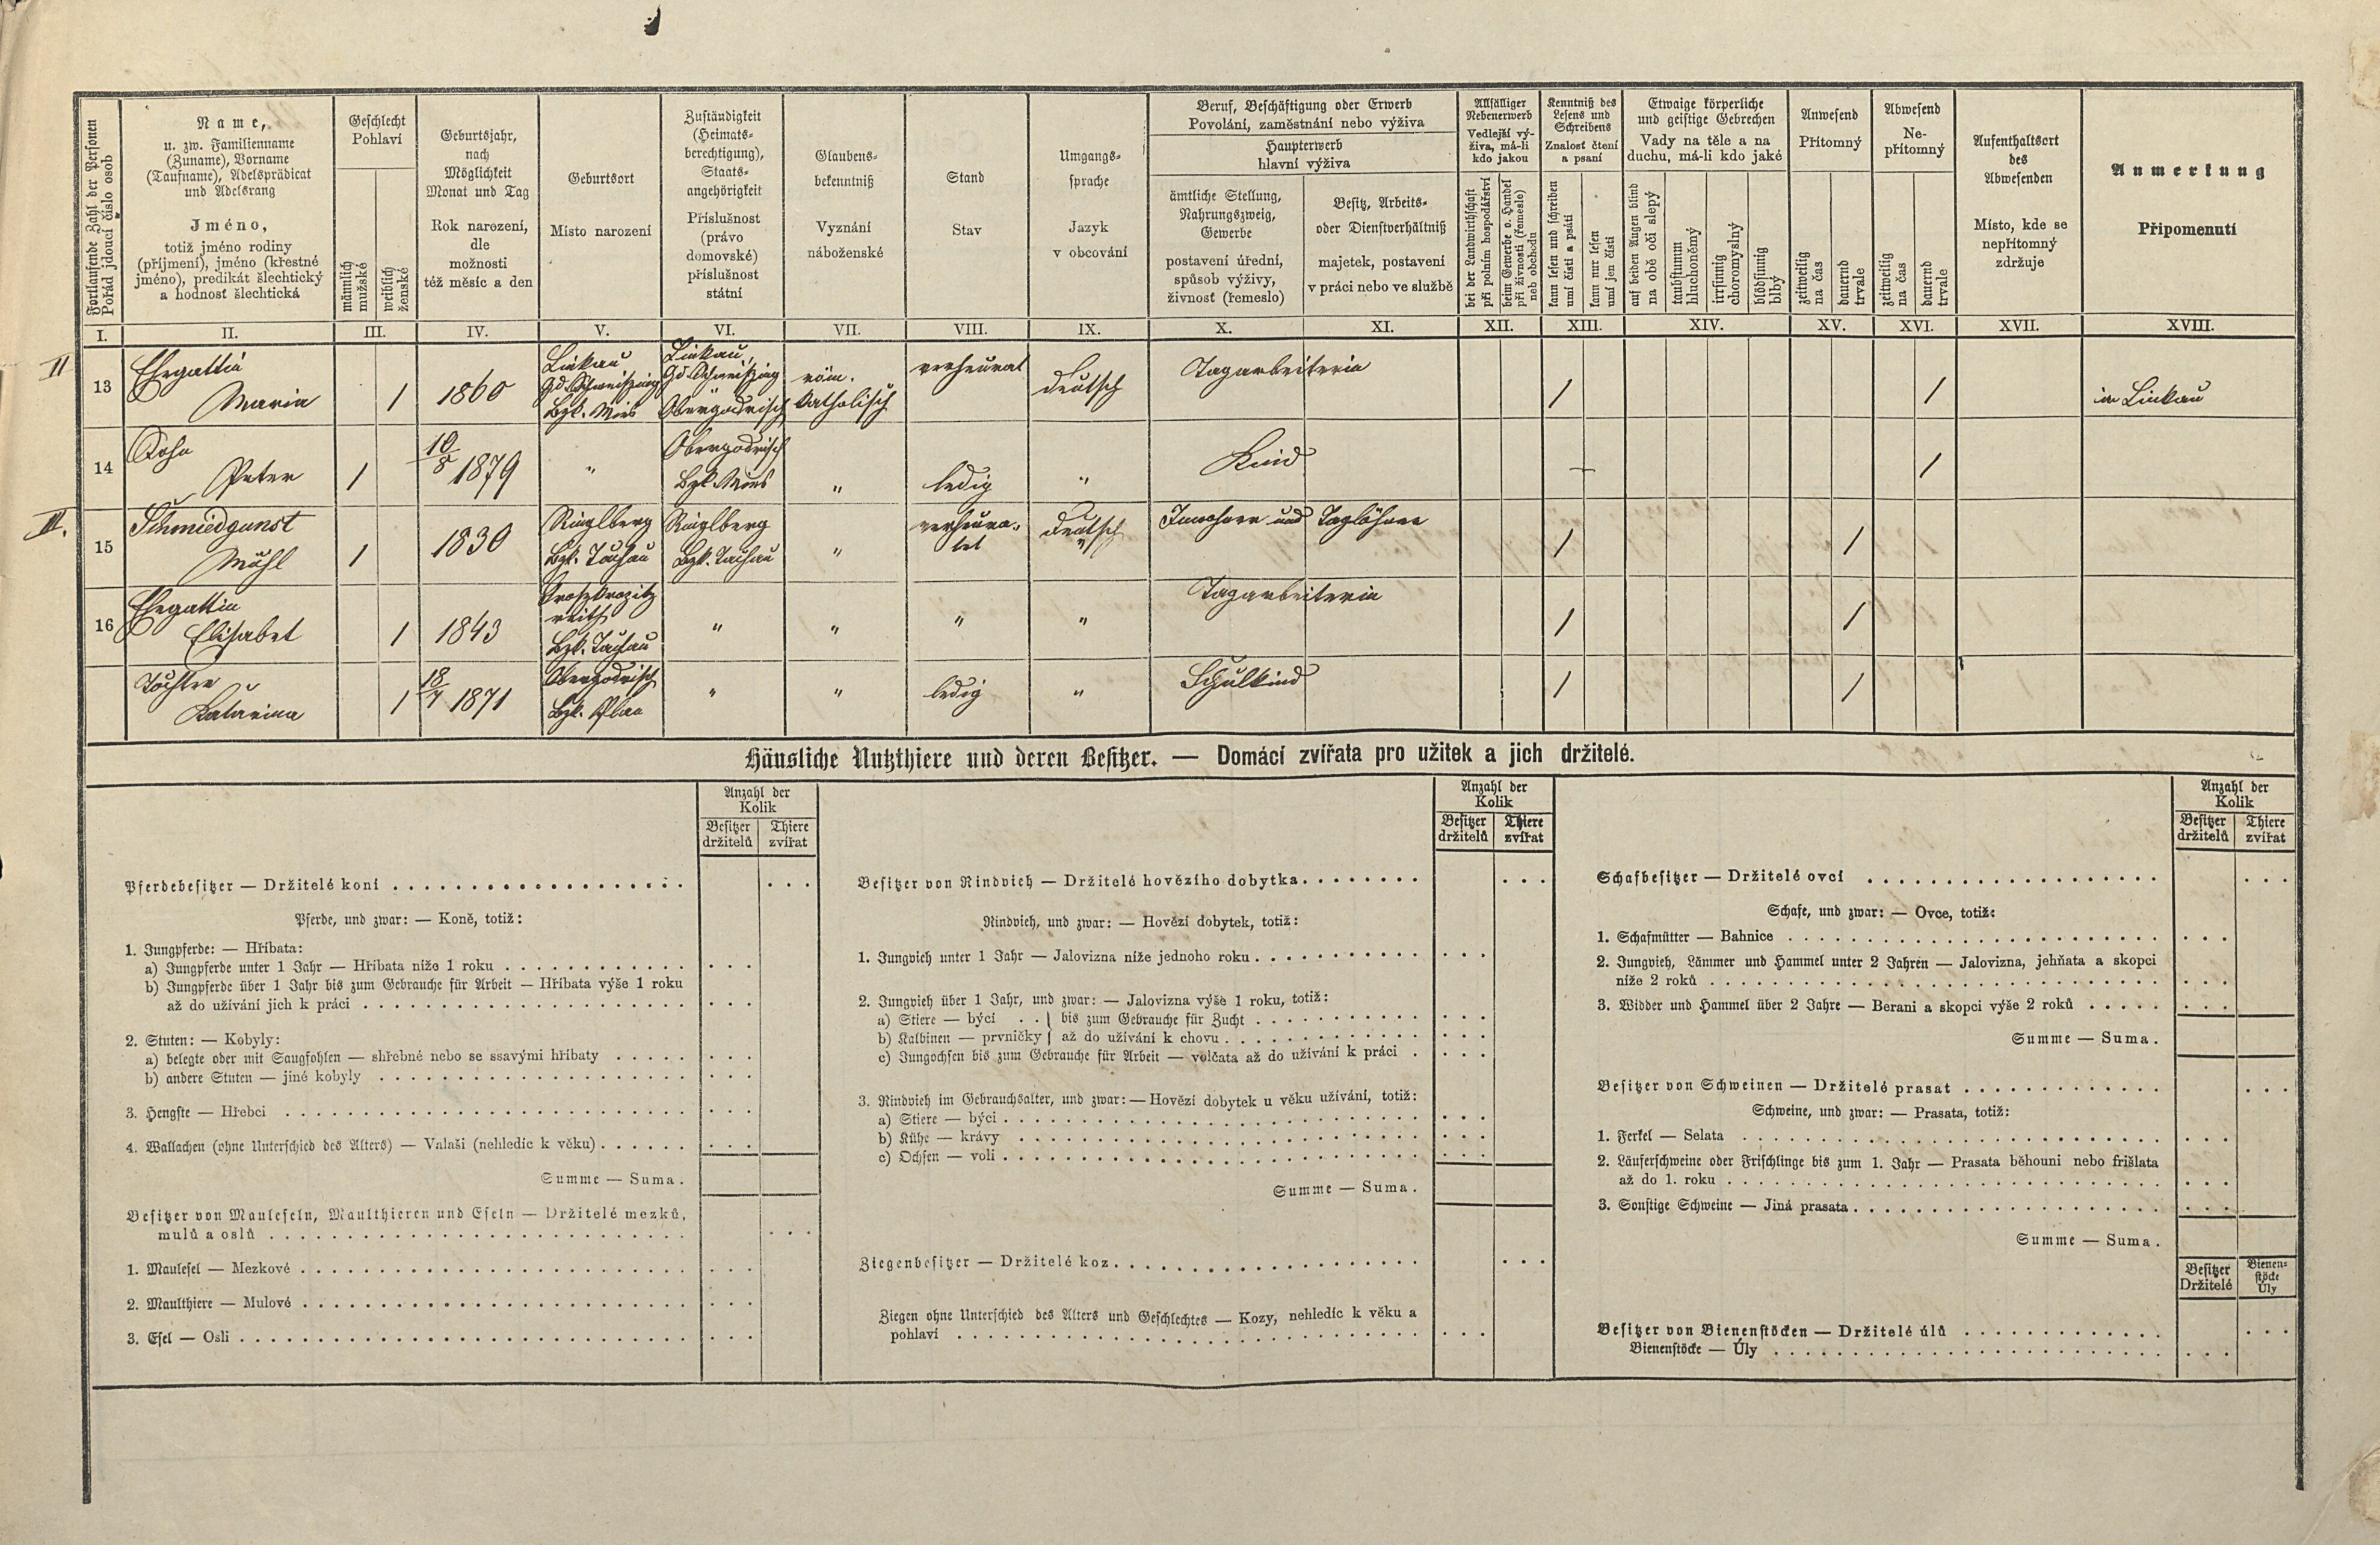 Fortlaufende Zahl der Personen
Pořád jdoucí číslo osob
Name,
u. zw. Familienname
(Zuname), Vorname
(Taufname), Adelsprädicat
und Adelsrang
Jméno,
totiž jméno rodiny
(příjmení), jméno (křestné
jméno), predikát šlechtický
a hodnosť šlechtická
Geschlecht
Pohlaví
männlich
mužské
weiblich
ženské
Geburtsjahr,
nach
Möglichkeit
Monat und Tag
Rok narození,
dle
možnosti
též měsíc a den
Geburtsort
Místo narození
Zuständigkeit
(Heimats-
berechtigung),
Staats-
angehörigkeit
Příslušnost
(právo
domovské)
příslušnost
státní
Glaubens-
bekenntniß
Vyznání
náboženské
Stand
Stav
Umgangs-
sprache
Jazyk
v obcování
Beruf, Beschäftigung oder Erwerb
Povolání, zaměstnání nebo výživa
Haupterwerb
hlavní výživa
ämtliche Stellung,
Nahrungszweig,
Gewerbe
postavení úřední,
spůsob výživy,
živnosť (řemeslo)
Besitz, Arbeits-
oder Dienstverhältniß
majetek, postavení
v práci nebo ve službě
Allfälliger
Nebenerwerb
Vedlejší vý-
živa, má-li
kdo jakou
bei der Landwirthschaft
při polním hospodářství
beim Gewerbe o. Handel
při živnosti (řemesle)
neb obchodu
Kenntniß des
Lesens und
Schreibens
Znalosť čtení
a psaní
kann lesen und schreiben
umí čísti a psáti
kann nur lesen
umí jen čísti
Etwaige körperliche
und geistige Gebrechen
Vady na těle a na
duchu, má-li kdo jaké
auf beiden Augen blind
na obě oči slepý
taubstumm
hluchoněmý
irrsinnig
choromyslný
blödsinnig
blbý
Anwesend
Přítomný
zeitweilig
na čas
dauernd
trvale
Abwesend
Ne-
přítomný
zeitweilig
na čas
dauernd
trvale
Aufenthaltsort
des
Abwesenden
Místo, kde se
nepřítomný
zdržuje
Anmerkung
Připomenutí
I. II. III. IV. V. VI. VII. VIII. IX. X. XI. XII. XIII. XIV. XV. XVI. XVII. XVIII.
II
13
Ehegattin
Maria
1
1860
Linkau
Gd. Schweißing
Bzk. Mies
Linkau,
Gd. Schweißing
Obergodrisch
röm.
katholisch
verheurat
deutsch
Tagarbeiterin
1
1
in Linkau
14
Sohn
Peter
1
10/8 1879
"
Obergodrisch
Bzk. Mies
"
ledig
"
Kind
1
III.
15
Schmiedgunst
Michl
1
1830
Ringlberg
Bzk. Tachau
Ringlberg
Bzk. Tachau
"
verheura-
tet
deutsch
"
Inwohner und Taglöhner
1
1
16
Ehegattin
Elisabet
1
1843
Bzk. Tachau
"
"
"
"
Tagarbeiterin
1
1
Tochter
Katarina
1
18/4 1871
Obergodrisch
Bzk. Plan
"
"
ledig
"
Schulkind
1
1
Häusliche Nutzthiere und deren Besitzer. — Domácí zvířata pro užitek a jich držitelé.
Anzahl der
Kolik
Besitzer
držitelů
Thiere
zvířat
Pferdebesitzer — Držitelé koní
Pferde, und zwar: — Koně, totiž:
1. Jungpferde: — Hříbata:
a) Jungpferde unter 1 Jahr — Hříbata níže 1 roku
b) Jungpferde über 1 Jahr bis zum Gebrauche für Arbeit — Hříbata výše 1 roku
až do užívání jich k práci
2. Stuten: — Kobyly:
a) belegte oder mit Saugfohlen — shřebné nebo se ssavými hříbaty
b) andere Stuten — jiné kobyly
3. Hengste — Hřebci
4. Wallachen (ohne Unterschied des Alters) — Valaši (nehledíc k věku)
Summe — Suma.
Besitzer von Mauleseln, Maulthieren und Eseln — Držitelé mezků,
mulů a oslů
1. Maulesel — Mezkové
2. Maulthiere — Mulové
3. Esel — Osli
Anzahl der
Kolik
Besitzer
držitelů
Thiere
zvířat
Besitzer von Rindvieh — Držitelé hovězího dobytka
Rindvieh, und zwar: — Hovězí dobytek, totiž:
1. Jungvieh unter 1 Jahr — Jalovizna níže jednoho roku
2. Jungvieh über 1 Jahr, und zwar: — Jalovizna výše 1 roku, totiž:
a) Stiere — býci . . } bis zum Gebrauche für Zucht
b) Kalbinen — prvničky } až do užívání k chovu
c) Jungochsen bis zum Gebrauche für Arbeit — volčata až do užívání k práci
3. Rindvieh im Gebrauchsalter, und zwar: — Hovězí dobytek u věku užívání, totiž:
a) Stiere — býci
b) Kühe — krávy
c) Ochsen — voli
Summe — Suma.
Ziegenbesitzer — Držitelé koz
Ziegen ohne Unterschied des Alters und Geschlechtes — Kozy, nehledíc k věku a
pohlaví
Anzahl der
Kolik
Besitzer
držitelů
Thiere
zvířat
Schafbesitzer — Držitelé ovcí
Schafe, und zwar: — Ovce, totiž:
1. Schafmütter — Bahnice
2. Jungvieh, Lämmer und Hammel unter 2 Jahren — Jalovizna, jehňata a skopci
níže 2 roků
3. Widder und Hammel über 2 Jahre — Berani a skopci výše 2 roků
Summe — Suma.
Besitzer von Schweinen — Držitelé prasat
Schweine, und zwar: — Prasata, totiž:
1. Ferkel — Selata
2. Läuferschweine oder Frischlinge bis zum 1. Jahr — Prasata běhouni nebo frišlata
až do 1. roku
3. Sonstige Schweine — Jiná prasata
Summe — Suma.
Besitzer
Držitelé
Bienen-
stöcke
Úly
Besitzer von Bienenstöcken — Držitelé úlů
Bienenstöcke — Úly